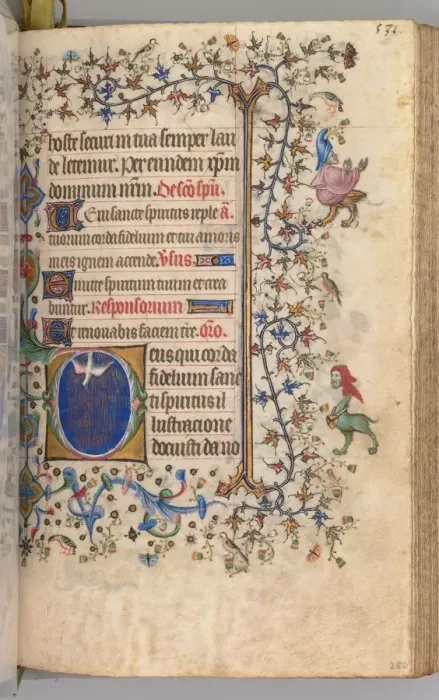 536.
hoste securi in tua semper lau
de letemur. Per eundem xpm
dominum nrm. De sco spu.
Ueni sancte spiritus reple a.
tuorum corda fidelium et tui amoris
in eis ignem accende. Vsus.
Emitte spiritum tuum et crea
buntur. Responsorium
Et renovabis faciem tre. Oro.
Deus qui corda
fidelium sanc
ti spiritus il
lustracione
docuisti da no
250